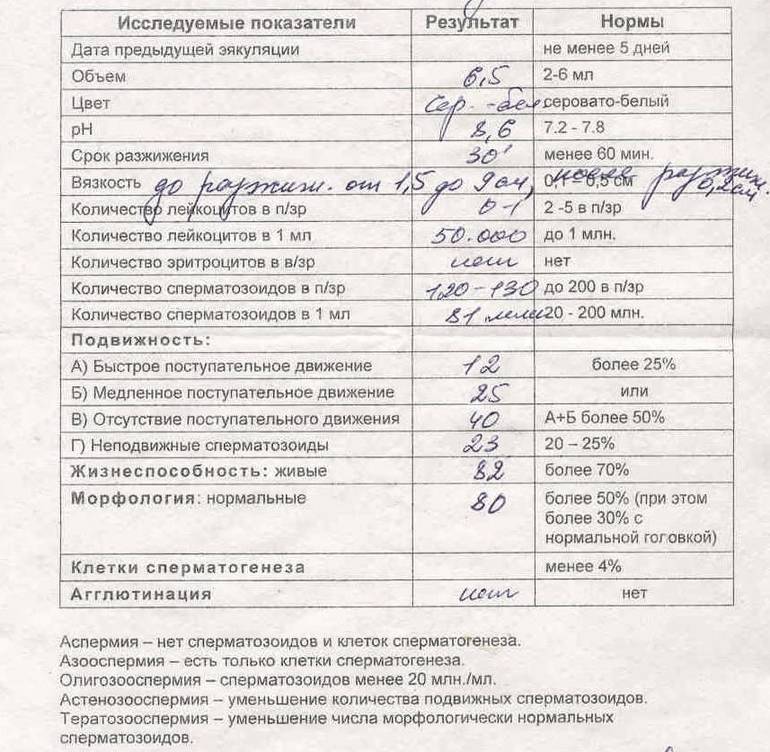 Исследуемые показатели Результат Нормы
Дата предыдущей эякуляции не менее 5 дней
Объем 6,5 2-6 мл
Цвет сер.-бел. серовато-белый
pH 8,6 7.2 - 7.8
Срок разжижения 30' менее 60 мин.
Вязкость до разжиж. от 1,5 до 9 см, после разжиж. 0,2 см 0,1 – 0,5 см
Количество лейкоцитов в п/зр 0-1 2 -5 в п/зр
Количество лейкоцитов в 1 мл 50.000 до 1 млн.
Количество эритроцитов в в/зр нет нет
Количество сперматозоидов в п/зр 120-130 до 200 в п/зр
Количество сперматозоидов в 1 мл 81 млн 20 - 200 млн.
Подвижность:
А) Быстрое поступательное движение 12 более 25%
Б) Медленное поступательное движение 25 или
В) Отсутствие поступательного движения 40 А+Б более 50%
Г) Неподвижные сперматозоиды 23 20 – 25%
Жизнеспособность: живые 82 более 70%
Морфология: нормальные 80 более 50% (при этом
более 30% с
нормальной головкой)
Клетки сперматогенеза менее 4%
Агглютинация нет нет
Аспермия – нет сперматозоидов и клеток сперматогенеза.
Азооспермия – есть только клетки сперматогенеза.
Олигозооспермия – сперматозоидов менее 20 млн./мл.
Астенозооспермия – уменьшение количества подвижных сперматозоидов.
Тератозооспермия – уменьшение числа морфологически нормальных
сперматозоидов.